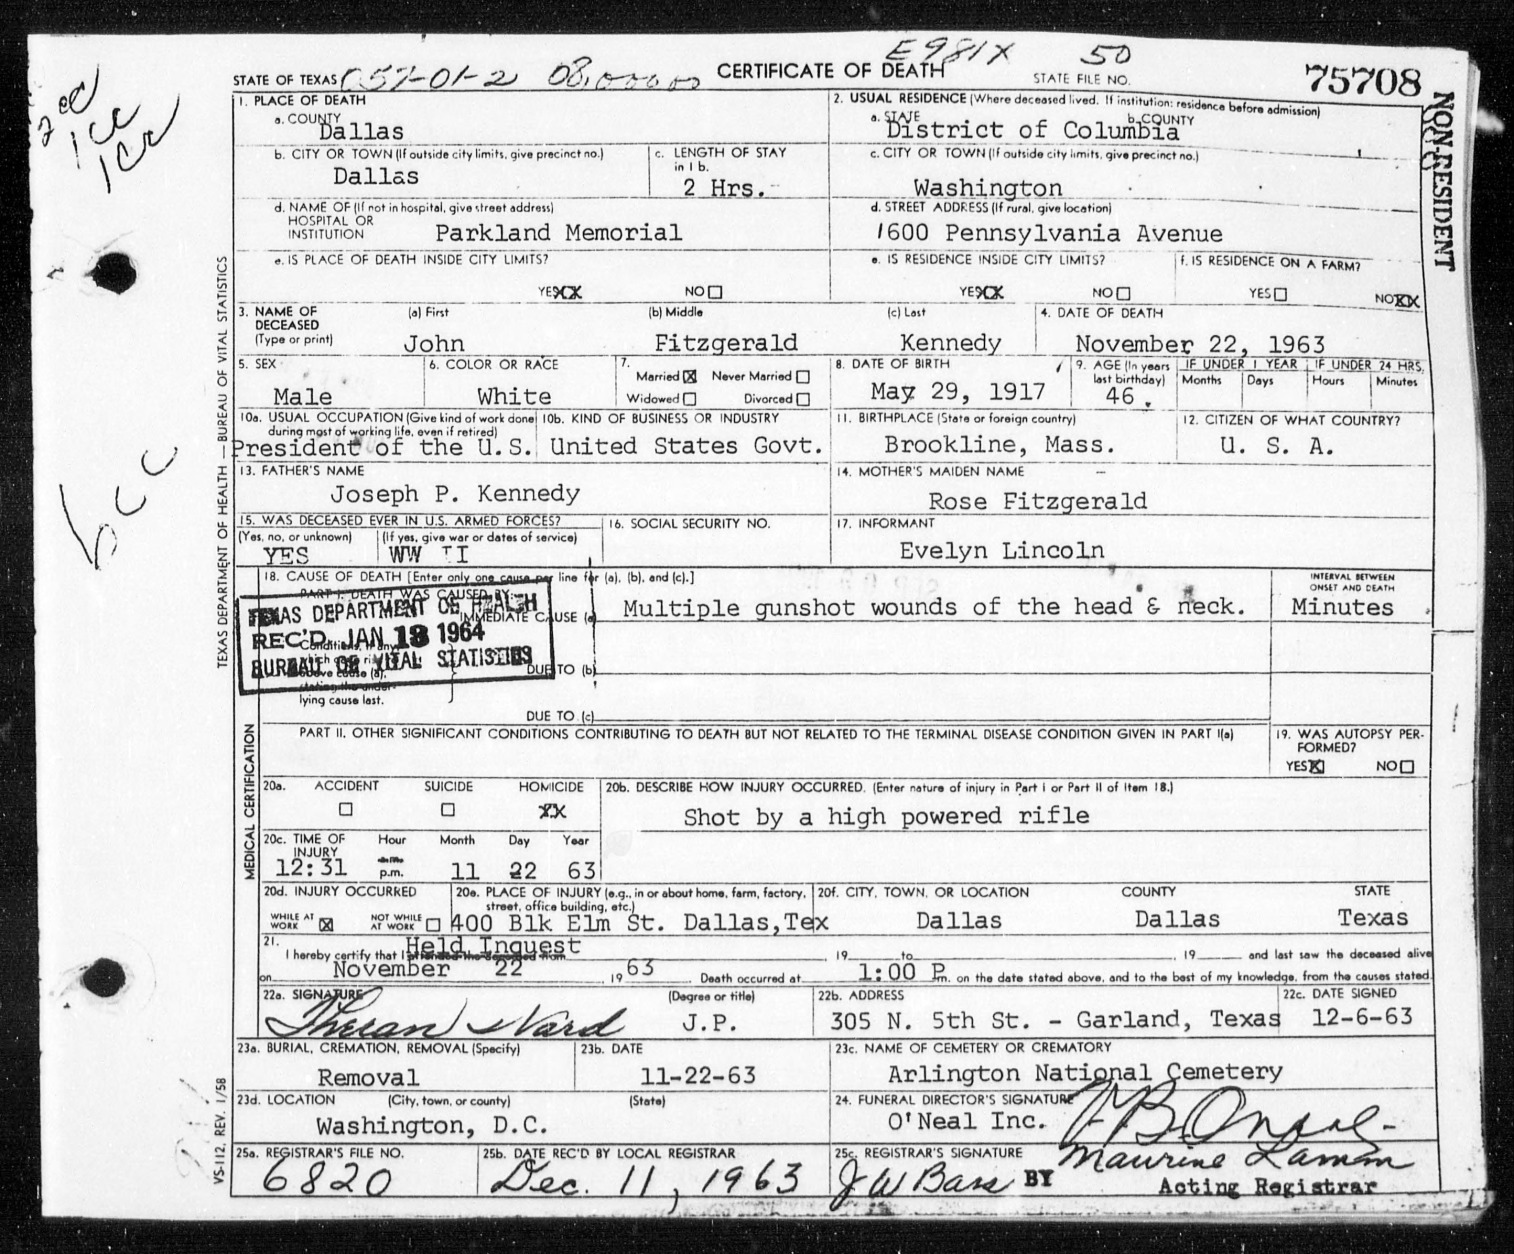 E981X 50
STATE OF TEXAS 057-01-2 CERTIFICATE OF DEATH STATE FILE NO. 75708
NON-RESIDENT
2 cc
1 cc
1 cc
5 cc
TEXAS DEPARTMENT OF HEALTH — BUREAU OF VITAL STATISTICS
1. PLACE OF DEATH
a. COUNTY
Dallas
2. USUAL RESIDENCE (Where deceased lived. If institution: residence before admission)
a. STATE b. COUNTY
District of Columbia
b. CITY OR TOWN (If outside city limits, give precinct no.)
Dallas
c. LENGTH OF STAY
in 1 b.
2 Hrs.
c. CITY OR TOWN (If outside city limits, give precinct no.)
Washington
d. NAME OF (If not in hospital, give street address)
HOSPITAL OR
INSTITUTION Parkland Memorial
d. STREET ADDRESS (If rural, give location)
1600 Pennsylvania Avenue
e. IS PLACE OF DEATH INSIDE CITY LIMITS?
YES XX NO
e. IS RESIDENCE INSIDE CITY LIMITS?
YES XX NO
f. IS RESIDENCE ON A FARM?
YES NO XX
3. NAME OF (a) First (b) Middle (c) Last
DECEASED
(Type or print) John Fitzgerald Kennedy
4. DATE OF DEATH
November 22, 1963
5. SEX
Male
6. COLOR OR RACE
White
7.
Married X Never Married
Widowed Divorced
8. DATE OF BIRTH
May 29, 1917
9. AGE (In years
last birthday)
46
IF UNDER 1 YEAR IF UNDER 24 HRS.
Months Days Hours Minutes
10a. USUAL OCCUPATION (Give kind of work done
during most of working life, even if retired)
President of the U.S.
10b. KIND OF BUSINESS OR INDUSTRY
United States Govt.
11. BIRTHPLACE (State or foreign country)
Brookline, Mass.
12. CITIZEN OF WHAT COUNTRY?
U. S. A.
13. FATHER'S NAME
Joseph P. Kennedy
14. MOTHER'S MAIDEN NAME
Rose Fitzgerald
15. WAS DECEASED EVER IN U.S. ARMED FORCES?
(Yes, no, or unknown) (If yes, give war or dates of service)
YES WW II
16. SOCIAL SECURITY NO.
17. INFORMANT
Evelyn Lincoln
MEDICAL CERTIFICATION
18. CAUSE OF DEATH [Enter only one cause per line for (a), (b), and (c).]
PART I. DEATH WAS CAUSED BY:
IMMEDIATE CAUSE (a) Multiple gunshot wounds of the head & neck.
INTERVAL BETWEEN
ONSET AND DEATH
Minutes
TEXAS DEPARTMENT OF HEALTH
REC'D JAN 13 1964
BUREAU OF VITAL STATISTICS
Conditions, if any,
which gave rise
above cause (a),
stating the under-
lying cause last.
DUE TO (b)
DUE TO (c)
PART II. OTHER SIGNIFICANT CONDITIONS CONTRIBUTING TO DEATH BUT NOT RELATED TO THE TERMINAL DISEASE CONDITION GIVEN IN PART I(a)
19. WAS AUTOPSY PER-
FORMED?
YES X NO
20a. ACCIDENT SUICIDE HOMICIDE
XX
20b. DESCRIBE HOW INJURY OCCURRED. (Enter nature of injury in Part I or Part II of Item 18.)
Shot by a high powered rifle
20c. TIME OF Hour Month Day Year
INJURY
12:31 p.m. 11 22 63
20d. INJURY OCCURRED
WHILE AT WORK X NOT WHILE AT WORK
20e. PLACE OF INJURY (e.g., in or about home, farm, factory,
street, office building, etc.)
400 Blk Elm St. Dallas,Tex
20f. CITY, TOWN, OR LOCATION COUNTY STATE
Dallas Dallas Texas
21. Held Inquest
I hereby certify that I attended the deceased from 19 to 19 and last saw the deceased alive
on November 22 19 63 Death occurred at 1:00 P m. on the date stated above, and to the best of my knowledge, from the causes stated.
22a. SIGNATURE (Degree or title)
Theran Ward J.P.
22b. ADDRESS
305 N. 5th St. - Garland, Texas
22c. DATE SIGNED
12-6-63
23a. BURIAL, CREMATION, REMOVAL (Specify)
Removal
23b. DATE
11-22-63
23c. NAME OF CEMETERY OR CREMATORY
Arlington National Cemetery
23d. LOCATION (City, town, or county) (State)
Washington, D.C.
24. FUNERAL DIRECTOR'S SIGNATURE
O'Neal Inc.
25a. REGISTRAR'S FILE NO.
6820
25b. DATE REC'D BY LOCAL REGISTRAR
Dec. 11, 1963
25c. REGISTRAR'S SIGNATURE
J W Bass BY Maurine Laman
Acting Registrar
VS-112, REV. 1/58